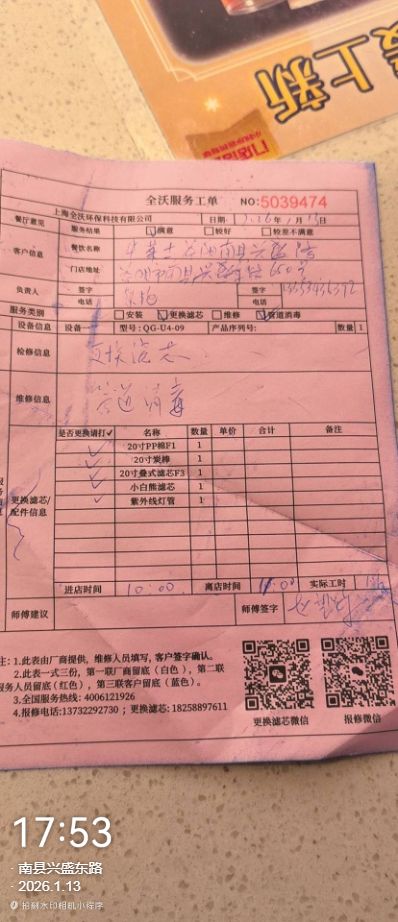 上新
全沃服务工单 NO:5039474
上海全沃环保科技有限公司 日期:
餐厅意见 服务结果 ☑满意 □较好 □较差不满意
客户信息 餐饮名称
门店地址
负责人 签字 签字
电话 电话
服务类别 □安装 ☑更换滤芯 □维修 ☑管道消毒
设备信息 设备 型号:QG-U4-09 产品序列号: 数量 1
检修信息 更换滤芯
维修信息 管道消毒
是否更换请打✓ 名称 数量 单价 合计 备注
更换滤芯/配件信息
✓ 20寸PP棉F1 1
✓ 20寸炭棒 1
✓ 20寸叠式滤芯F3 1
✓ 小白熊滤芯 1
✓ 紫外线灯管 1
进店时间 10:00 离店时间 11:00 实际工时
师傅建议 师傅签字
注:1.此表由厂商提供,维修人员填写,客户签字确认。
2.此表一式三份,第一联厂商留底(白色),第二联
服务人员留底(红色),第三联客户留底(蓝色)。
3.全国服务热线:4006121926
4.报修电话:13732292730;更换滤芯:18258897611
更换滤芯微信 报修微信
17:53
·南县兴盛东路
·2026.1.13